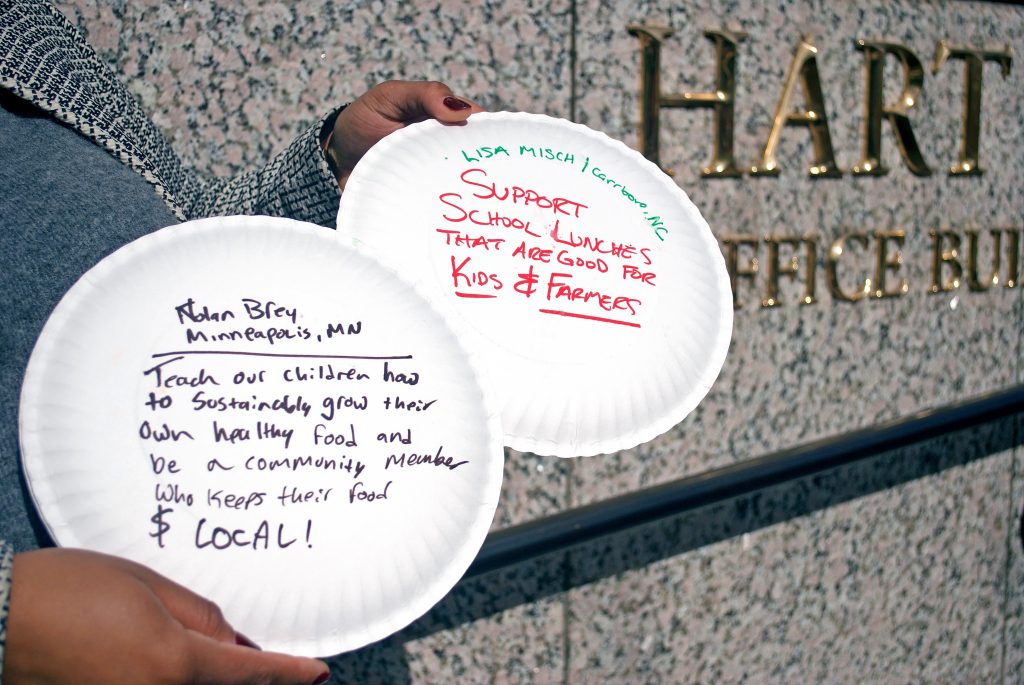 Nolan Brey
Minneapolis, MN
Teach our children how
to Sustainably grow their
own healthy food and
be a community member
who keeps their food
$ LOCAL!
LISA MISCH / Carrboro, NC
SUPPORT
SCHOOL LUNCHES
THAT ARE GOOD FOR
KIDS & FARMERS
HART
OFFICE BUI